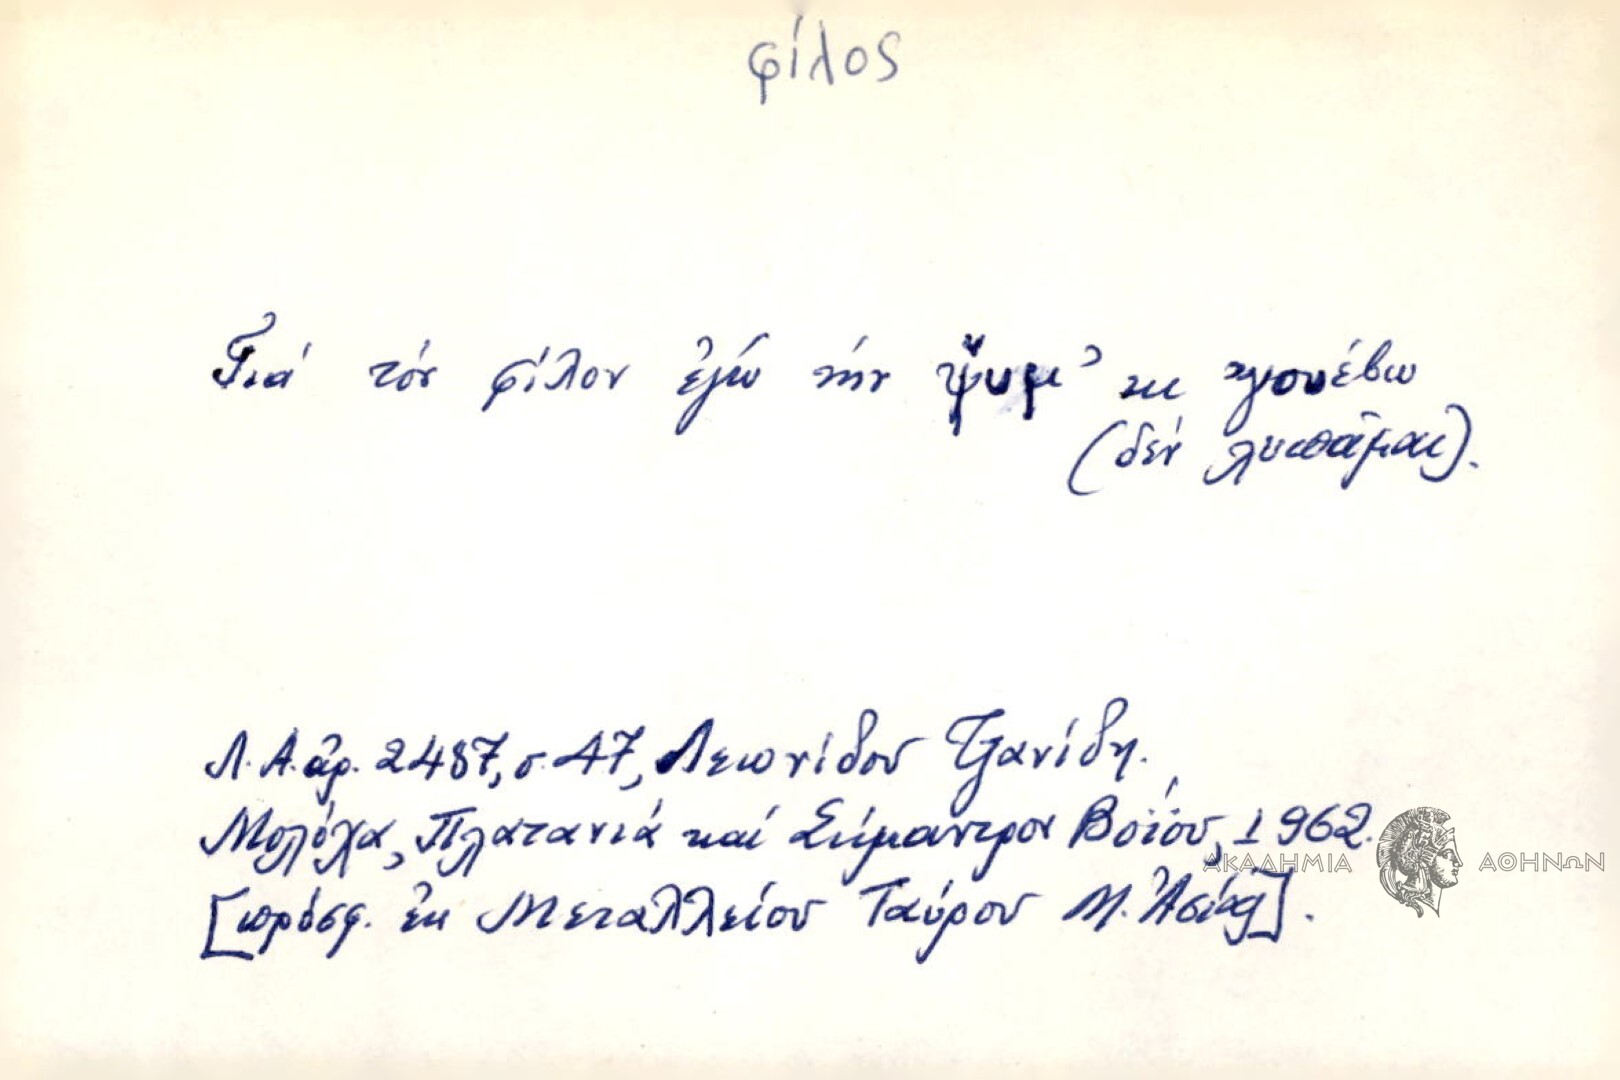 φίλος
Γιά τόν φίλον ἐγώ τήν ψυμ' κι
(δέν λυπᾶμαι).
Λ. Α. ἀρ. 2487, σ. 47, Λεωνίδου Τζανίδη.
Μολόχα, Πλατανιά καί Σήμαντρον Βοΐου, 1962.
[πρόσφ. ἐκ Μεταλλείου Ταύρου Μ. Ἀσίας].
ΑΚΑΔΗΜΙΑ ΑΘΗΝΩΝ